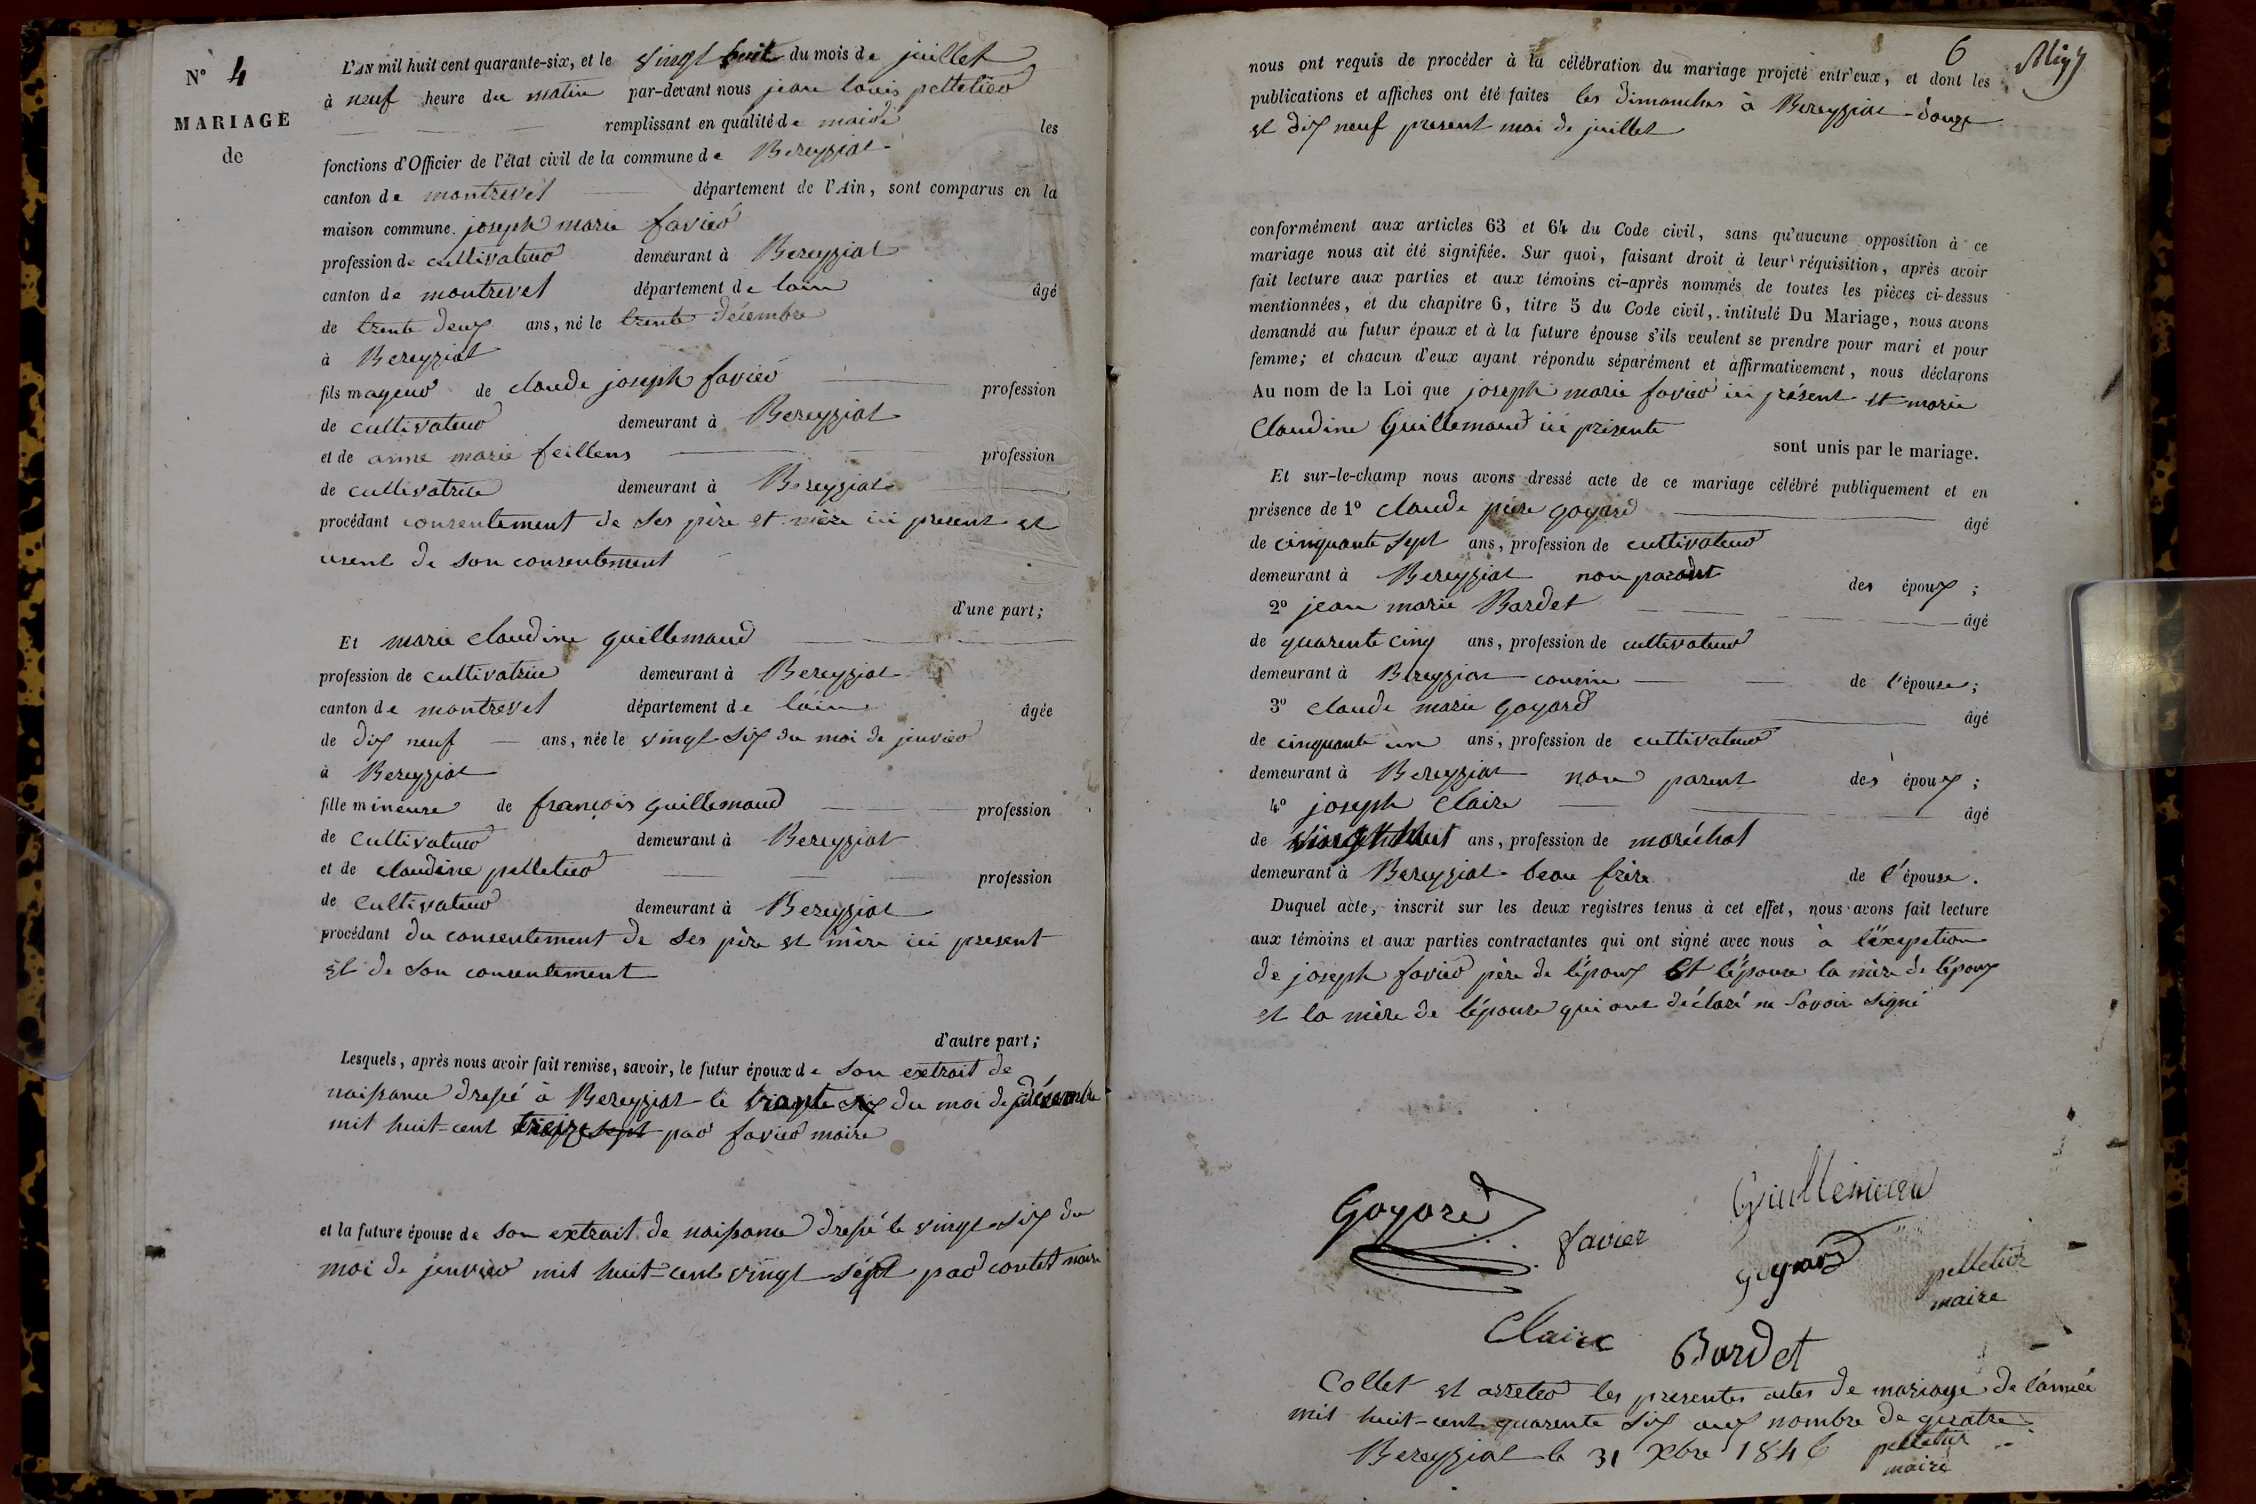 N° 4
MARIAGE
de
L'AN mil huit cent quarante-six, et le vingt huit du mois de juillet
à neuf heure du matin par-devant nous jean louis pelletier
remplissant en qualité de maire les
fonctions d'Officier de l'état civil de la commune de Bereyziat
canton de montrevel département de l'Ain, sont comparus en la
maison commune. joseph marie favier
profession de cultivateur demeurant à Bereyziat
canton de montrevel département de lain âgé
de trente deux ans, né le trente décembre
à Bereyziat
fils mageur de claude joseph favier profession
de cultivateur demeurant à Bereyziat
et de anne marie feillens profession
de cultivatrice demeurant à Bereyziat
procédant consentement de ses père et mère ici present et
usent de son consentement
d'une part;
Et marie claudine guillemaud
profession de cultivatrice demeurant à Bereyziat
canton de montrevel département de l'ain âgée
de dix neuf ans, née le vingt six du moi de jenvier
à Bereyziat
fille mineure de françois guillemaud profession
de cultivateur demeurant à Bereyziat
et de claudine pelletier profession
de cultivateur demeurant à Bereyziat
procédant du consentement de ses père et mère ici present
et de son consentement
d'autre part;
Lesquels, après nous avoir fait remise, savoir, le futur époux de son extrait de
naissance dressé à Bereyziat le du moi de décembre
mil huit-cent treize par favier maire
et la future épouse de son extrait de naissance dressé le vingt six du
moi de jenvier mil huit-cent vingt sept par contet maire
6
nous ont requis de procéder à la célébration du mariage projeté entr'eux, et dont les
publications et affiches ont été faites les dimanches à Bereyziat douze
et dix neuf present moi de juillet
conformément aux articles 63 et 64 du Code civil, sans qu'aucune opposition à ce
mariage nous ait été signifiée. Sur quoi, faisant droit à leur réquisition, après avoir
fait lecture aux parties et aux témoins ci-après nommés de toutes les pièces ci-dessus
mentionnées, et du chapitre 6, titre 5 du Code civil, intitulé Du Mariage, nous avons
demandé au futur époux et à la future épouse s'ils veulent se prendre pour mari et pour
femme; et chacun d'eux ayant répondu séparément et affirmativement, nous déclarons
Au nom de la Loi que joseph marie favier ici présent et marie
Claudine Guillemaud ici présente
sont unis par le mariage.
Et sur-le-champ nous avons dressé acte de ce mariage célébré publiquement et en
présence de 1° claude piere goyard âgé
de cinquante sept ans, profession de cultivateur
demeurant à Bereyziat non parent des époux;
2° jean marie Bardet âgé
de quarente cinq ans, profession de cultivateur
demeurant à Bereyziat cousin de l'épouse;
3° claude marie goyard âgé
de cinquante un ans, profession de cultivateur
demeurant à Bereyziat non parent des époux;
4° joseph Claire âgé
de ans, profession de maréchal
demeurant à Bereyziat beau frère de l'épouse.
Duquel acte, inscrit sur les deux registres tenus à cet effet, nous avons fait lecture
aux témoins et aux parties contractantes qui ont signé avec nous à l'éxepetion
de joseph favier père de l'époux et l'épouse la mère de l'époux
et la mère de l'épouse qui ont déclaré ne savoir signé
Goyard
favier
Guillemaud
goyard
pelletier
maire
Claire
Bardet
Collet et arreter les presentes actes de mariage de l'année
mil huit-cent quarente six aux nombre de quatre
Bereyziat le 31 Xbre 1846 pelletier
maire